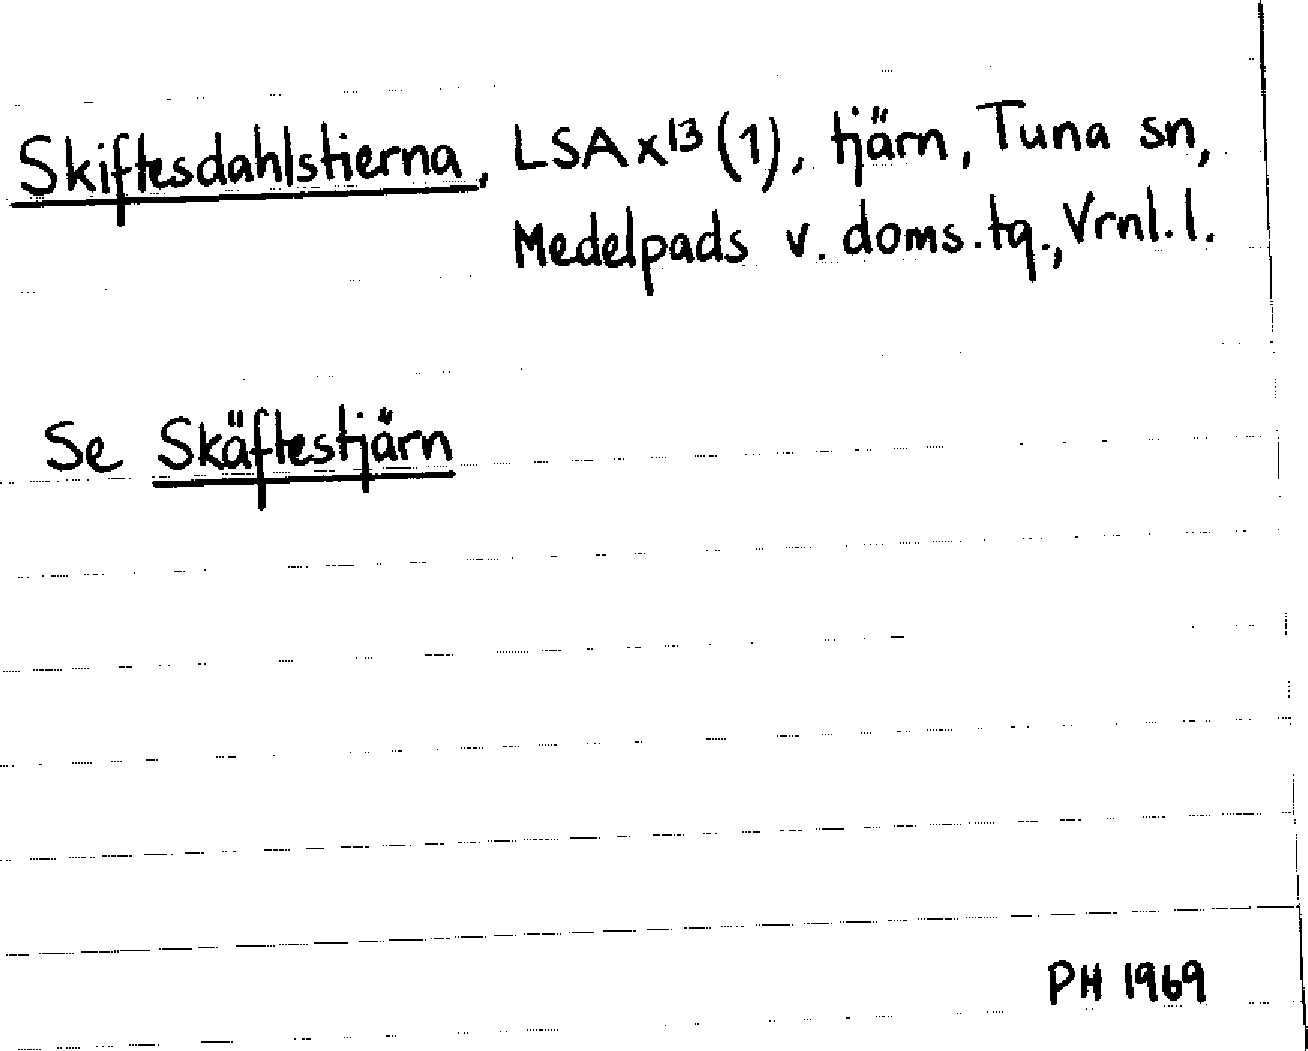 Skiftesdahlstierna, LSA x13 (1), tjärn, Tuna sn,
Medelpads v. doms.tg., Vrnl.l.
Se Skäftestjärn
PH 1969